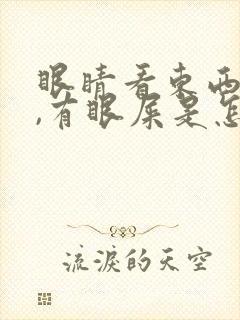 眼睛看東西
,有眼屎是怎
流淚的天空